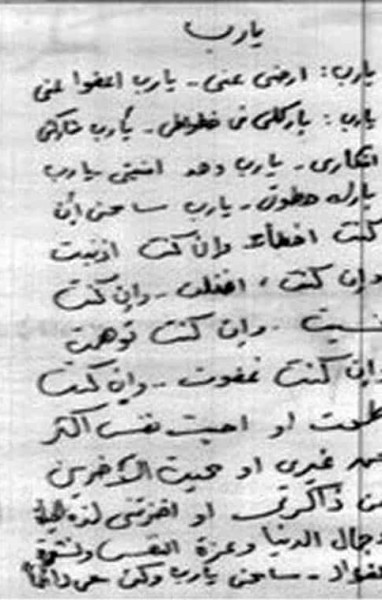 يارب
يارب: ارضى عنى - يارب اعفوا عنى
يارب: باركلى فى خطواتى - يارب شاركنى
افكارى - يارب وحد امنيتى - يارب
بارك خطوتى - يارب سامحنى إن
كنت اخطأت وإن كنت اذنبت
وإن كنت اغفلت - وإن كنت
نسيت - وإن كنت توهمت
وإن كنت غفوت - وإن كنت
طمعت او احببت نفسى اكثر
من غيرى او محيت الآخرين
من ذاكرتى او اخذتنى لذة الحياة
وجمال الدنيا وعزة النفس ونشوة
الفؤاد - سامحنى يارب وكن معى دائماً